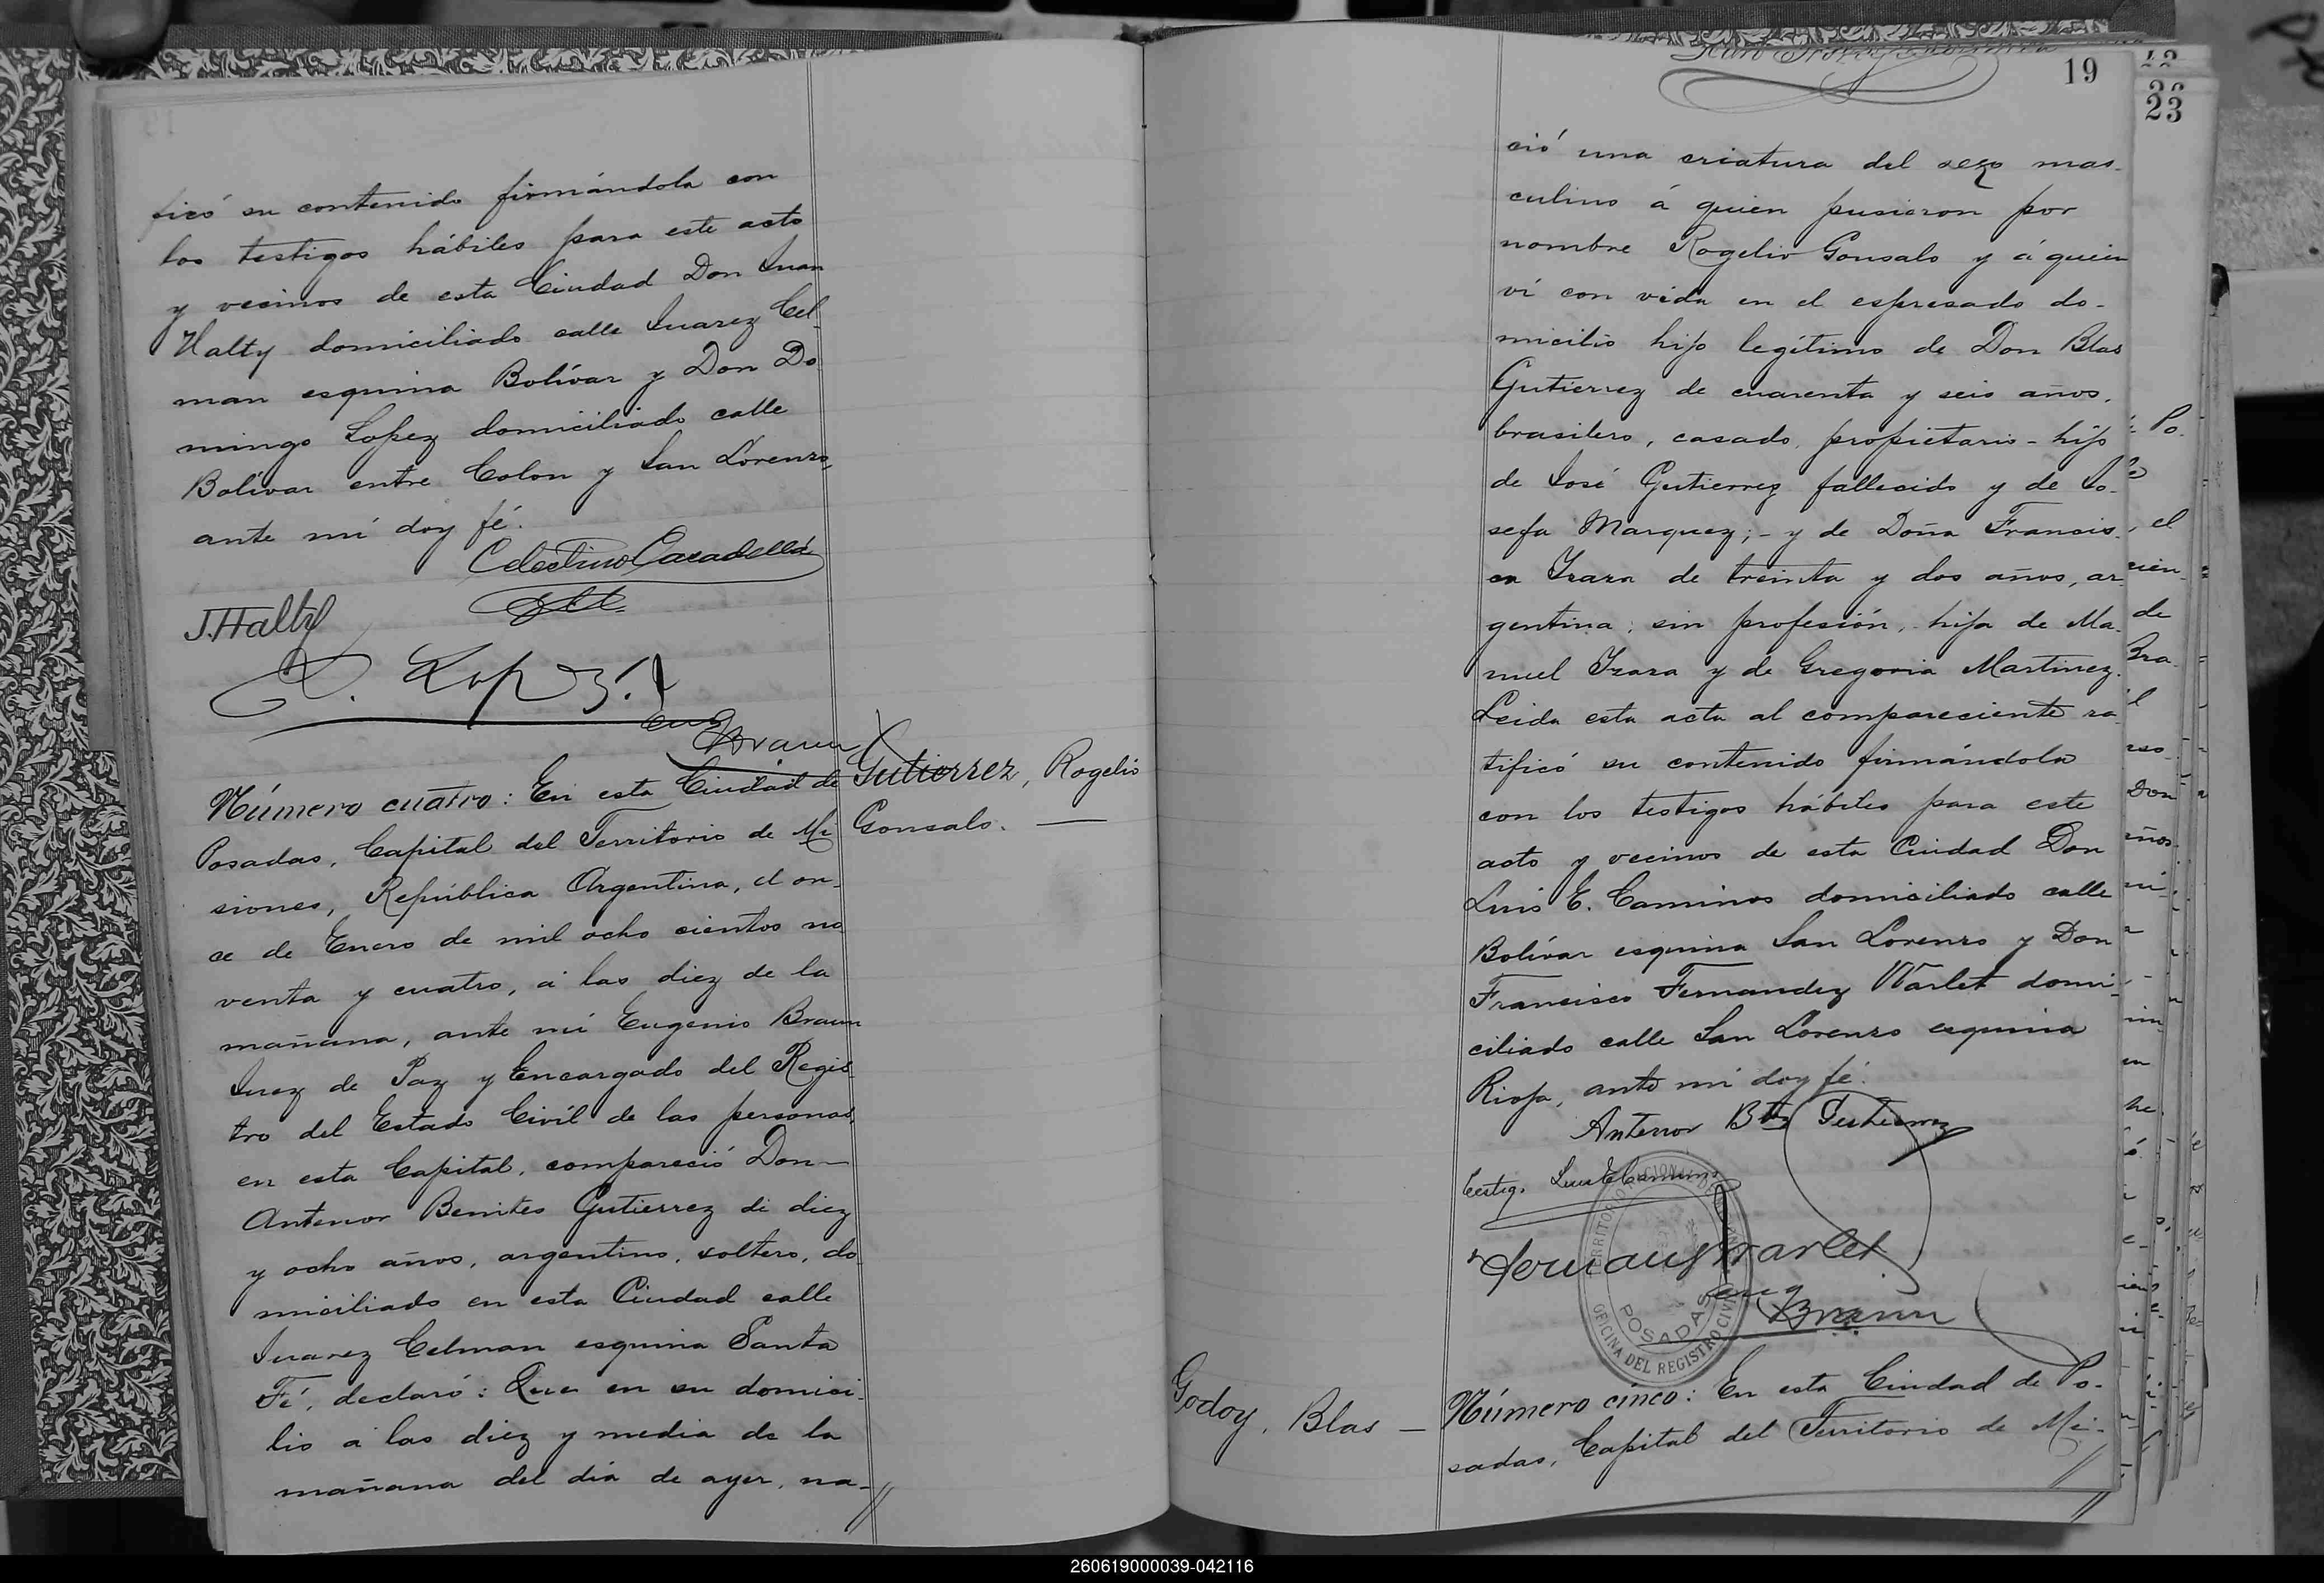 ficó su contenido firmándola con
los testigos hábiles para este acto
y vecinos de esta Ciudad Don Juan
Halty domiciliado calle Juarez Cel-
man esquina Bolívar y Don Do
mingo Lopez domiciliado calle
Bolívar entre Colon y San Lorenzo,
ante mí doy fé.
Celestino
J. Halty
D. Lopez
Eug Braun
Número cuatro: En esta Ciudad de
Posadas, Capital del Territorio de Mi
siones, República Argentina, el on-
ce de Enero de mil ocho cientos no
venta y cuatro, á las diez de la
mañana, ante mí Eugenio Braun
Juez de Paz y Encargado del Regis-
tro del Estado Civíl de las personas,
en esta Capital, compareció Don—
Antenor Benites Gutierrez de diez
y ocho años, argentino, soltero, do
miciliado en esta Ciudad calle
Juarez Celman esquina Santa
Fé, declaró: Que en su domici-
lio á las diez y media de la
mañana del día de ayer, na-//
Gutierrez, Rogelio
Gonsalo. —
19
23
ció una criatura del sexo mas-
culino á quien pusieron por
nombre Rogelio Gonsalo y á quien
ví con vida en el espresado do-
micilio hijo legítimo de Don Blas
Gutierrez de cuarenta y seis años,
brasilero, casado, propietario - hijo
de José Gutierrez fallecido y de Jo-
sefa Marquez; - y de Doña Francis-
ca Izara de treinta y dos años, ar-
gentina, sin profesión, hija de Ma-
nuel Izara y de Gregoria Martinez.
Leida esta acta al compareciente ra-
tificó su contenido firmándola
con los testigos hábiles para este
acto y vecinos de esta Ciudad Don
Luis E. Caminos domiciliado calle
Bolívar esquina San Lorenzo y Don
Francisco Fernandez Warlet domi-
ciliado calle San Lorenzo esquina
Rioja, ante mí doy fé.
Antenor Btez Gutierrez
testigo Luis E Caminos
Fernandz Warlet
Eug Braun
TERRITORIO NACIONAL DE
POSADAS
OFICINA DEL REGISTRO CIVIL
Godoy, Blas —
Número cinco: En esta Ciudad de Po-
sadas, Capital del Territorio de Mi-//
260619000039-042116